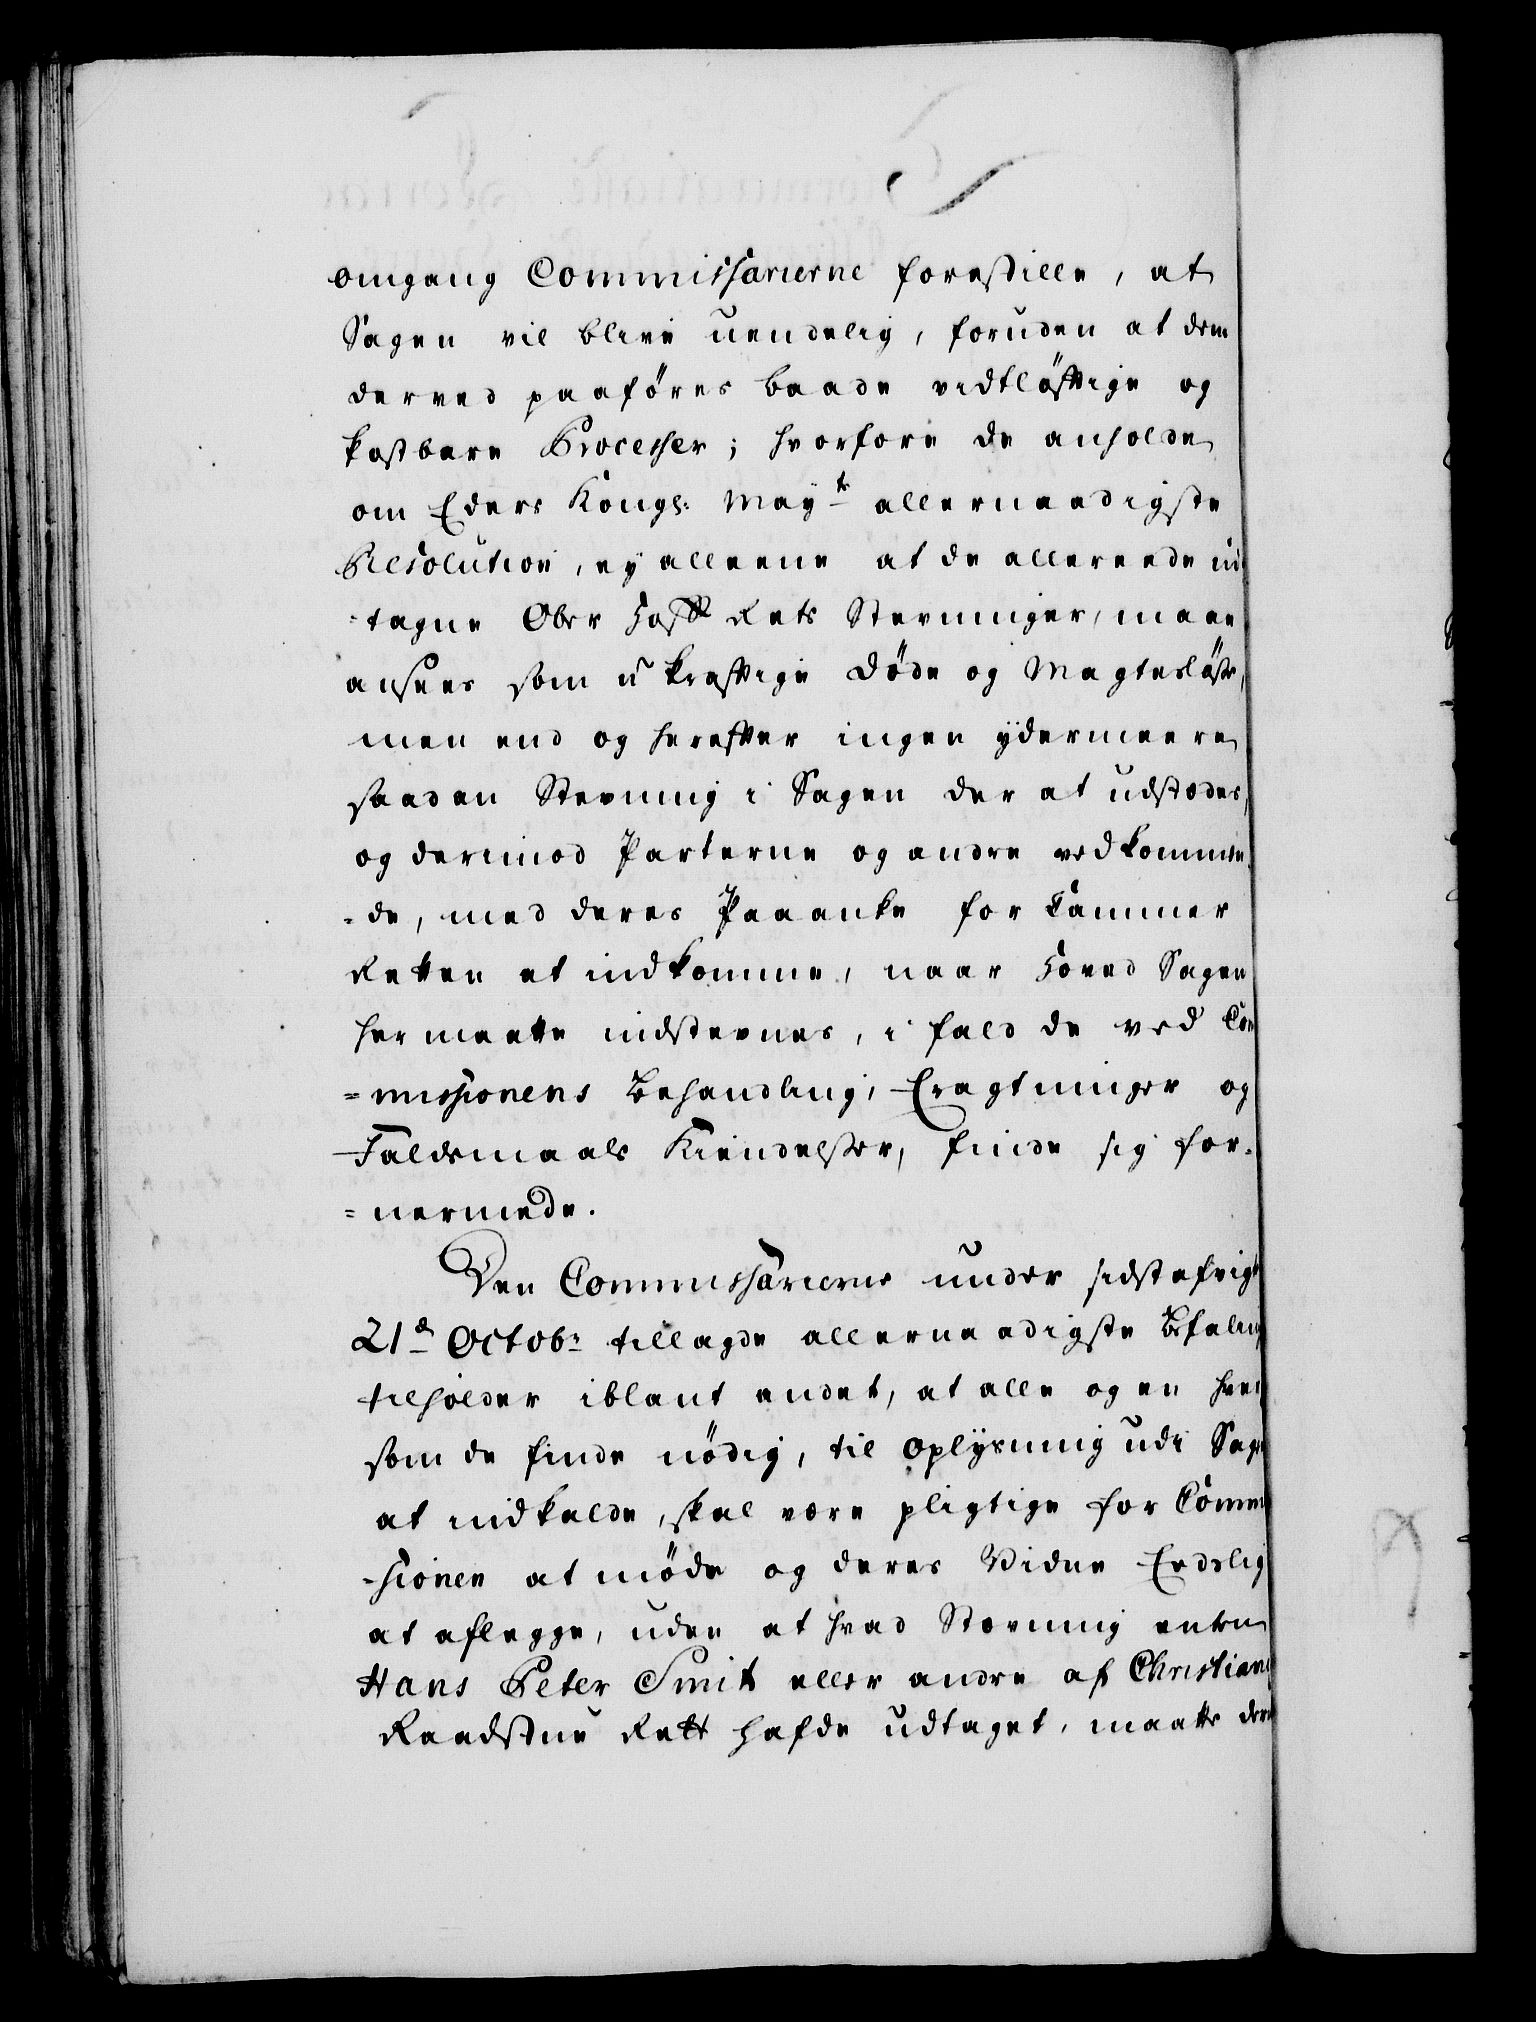 omgang Commissarierne forestille, at
Sagen vil blive uendelig, foruden at dem
derved paaföres baade vidtløfftige og
kostbare Processer; hvorfore de anholde
om Eders Kongl: May.ts allernaadigste
Resolution, ey alleene at de allereede ud
-tagne Ober Hoff Rets Stevninger, maae
ansees som u kraftige døde og Magtesløse,
men end og herefter ingen ÿdermeere
saadan Stevning i Sagen der at udstædes,
og derimod Parterne og andre vedkommen
-de, med deres Paaanke for Cammer
Retten at indkomme, naar Hoved Sagen
her maatte indstevnes, i fald de ved Com
=missionens Behandling, Eragtninger og
Faldsmaals Kiendelser, finde sig for-
=nermede.
Den Commissarierne under sidstafvigt
21.de Octobr: tillagde allernaadigste Befaling
tilholder iblant andet, at alle og en hver
som de finde nödig, til Oplÿsning udi Sagen
at indkalde, skal være pligtige for Commi
-sionen at møde og deres Vidne Eedelig
at aflegge, uden at hvad Stævning enten
Hans Peter Smit eller andre af Christians
Raadstue Rett hafde udtaget, maatte dem